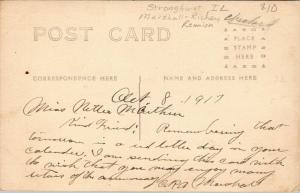 Stronghurst IL 810
Marshall-Richey checked
Reunion
POST CARD
PLACE
STAMP
HERE
CORRESPONDENCE HERE NAME AND ADDRESS HERE
Oct 8 1917
Miss Nettie
Kind Friend: Remembering that
tomorrow is a red letter day in your
calendar I am sending this card with
the wish that you may enjoy many
returns of the anniversary
Marshall